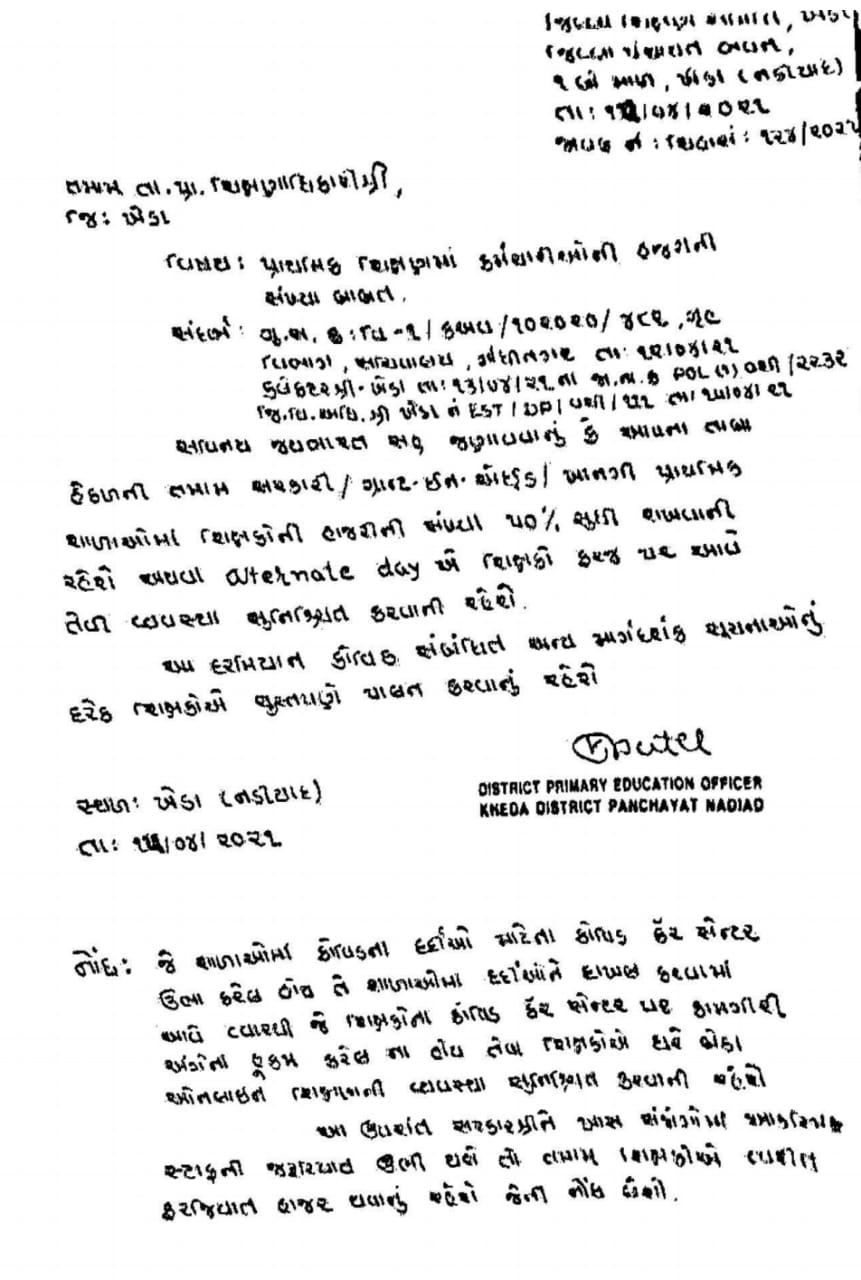 જિલ્લા શિક્ષણ સમિતિ, ખેડા
જિલ્લા પંચાયત ભવન,
૧ લો માળ, ખેડા (નડીયાદ)
તા: /૦૪/૨૦૨૧
જાવક નં : : ૧૨૪/૨૦૨૧
તમામ તા.પ્રા. શિક્ષણાધિકારીશ્રી,
જિ: ખેડા
વિષય: પ્રાથમિક શિક્ષણમાં કર્મચારીઓની હાજરીની
સંખ્યા બાબત.
સંદર્ભ: ગુ.સ. ક્ર:વિ-૧/કઅવ/૧૦૨૦૨૦/૪૮૨, ગૃહ
વિભાગ, સચિવાલય, ગાંધીનગર તા: ૧૨/૦૪/૨૧
કલેકટરશ્રી-ખેડા તા: ૧૩/૦૪/૨૧ ના જા.ન.ક્ર POL (૧) વશી/૨૨૩૨
જિ.વિ.અધિ.શ્રી ખેડા નં EST/DP/વશી/ તા/ /૦૪/૨૧
સવિનય જયભારત સહ જણાવવાનું કે આપના તાબા
હેઠળની તમામ સરકારી/ ગ્રાન્ટ-ઈન-એઈડ/ ખાનગી પ્રાથમિક
શાળાઓમાં શિક્ષકોની હાજરીની સંખ્યા ૫૦% સુધી રાખવાની
રહેશે અથવા alternate day એ શિક્ષકો ફરજ પર આવે
તેવી વ્યવસ્થા સુનિશ્ચિત કરવાની રહેશે.
આ દરમિયાન કોવિડ સંબંધિત અન્ય માર્ગદર્શક સૂચનાઓનું
દરેક શિક્ષકોએ ચુસ્તપણે પાલન કરવાનું રહેશે
Patel
DISTRICT PRIMARY EDUCATION OFFICER
KHEDA DISTRICT PANCHAYAT NADIAD
સ્થળ: ખેડા (નડીયાદ)
તા: /૦૪/ ૨૦૨૧
નોંધ: જે શાળાઓમાં કોવિડના દર્દીઓ માટેના કોવિડ કેર સેન્ટર
ઉભા કરેલ હોય તે શાળાઓમાં દર્દીઓને દાખલ કરવામાં
આવે ત્યારથી જે શિક્ષકોના કોવિડ કેર સેન્ટર પર કામગીરી
અંગેના હુકમ કરેલ ના હોય તેવા શિક્ષકોએ ઘરે બેઠા
ઓનલાઈન શિક્ષણની વ્યવસ્થા સુનિશ્ચિત કરવાની રહેશે
આ ઉપરાંત સરકારશ્રીને ખાસ સંજોગોમાં આકસ્મિક
સ્ટાફની જરૂરિયાત ઉભી થશે તો તમામ શિક્ષકોએ ત્વરીત
ફરજિયાત હાજર થવાનું રહેશે જેની નોંધ લેશો.